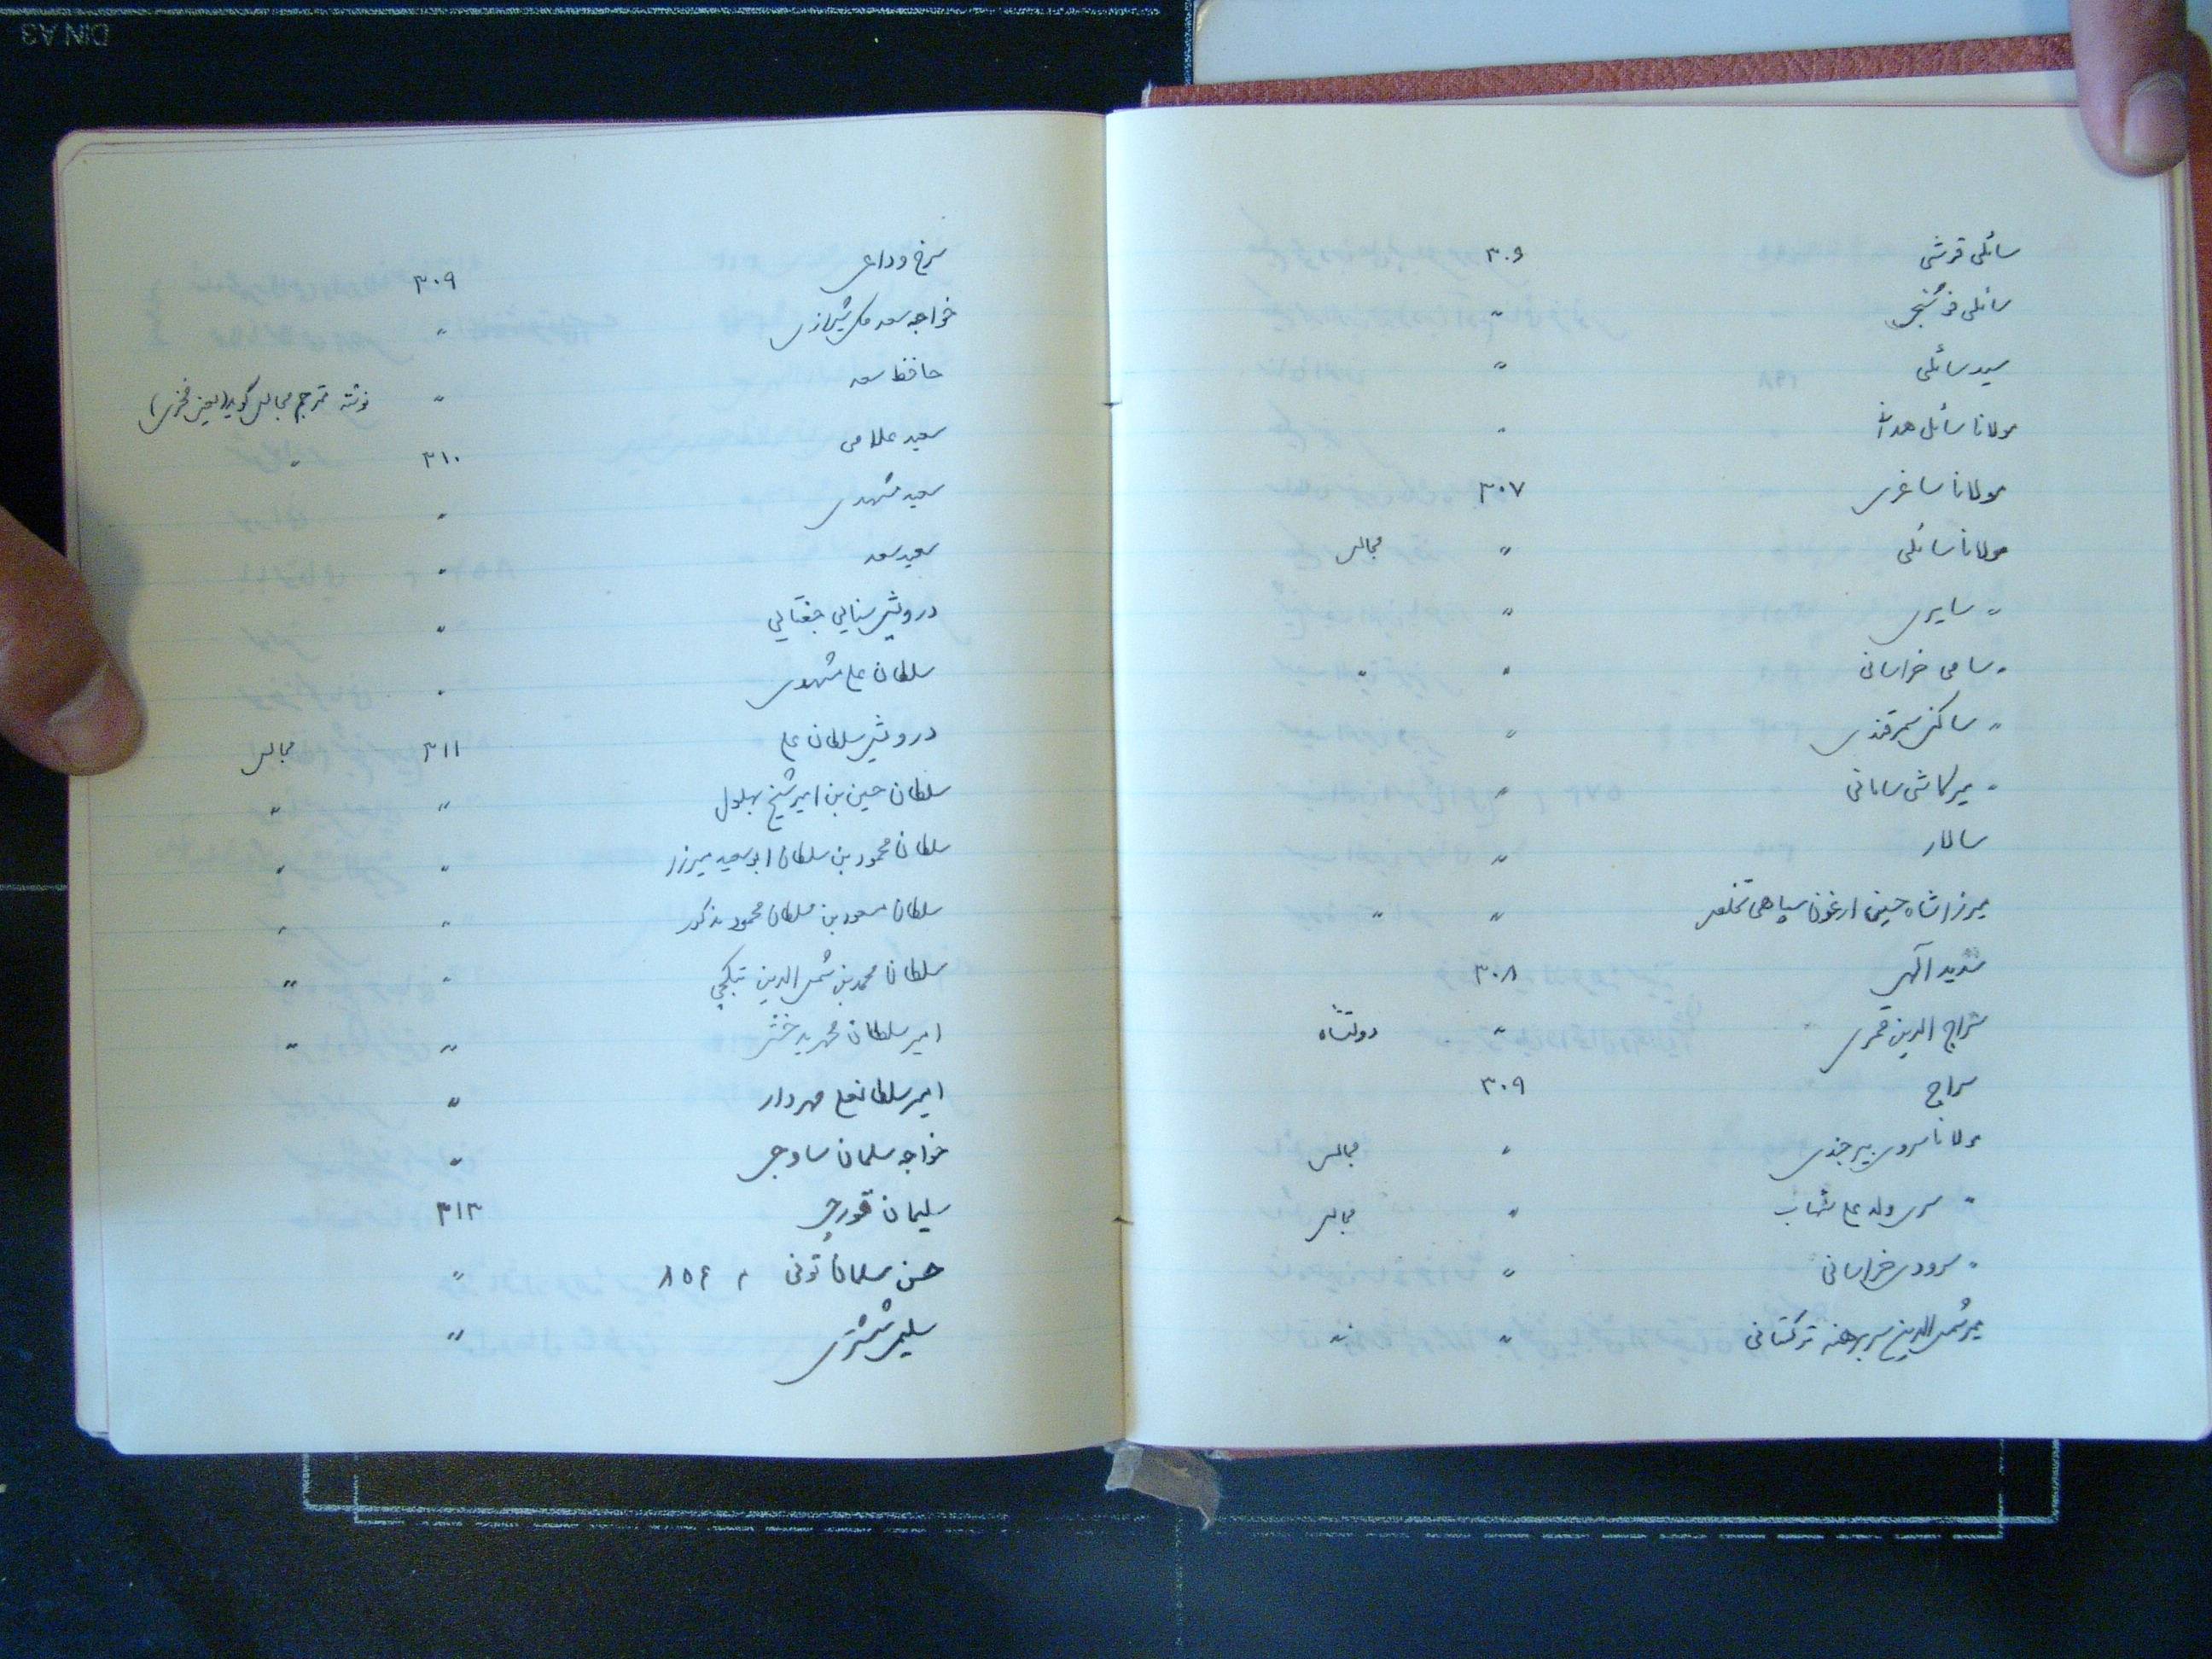 سائلی قرشی ۳۰۶
سائلی فرشنجی "
سید سائلی "
مولانا سائل همدانی "
مولانا ساغری ۳۰۷
مولانا سائلی " مجالس
" سایری "
" سامی خراسانی " "
" ساکنی سمرقندی "
" میر کاشی سامانی "
سالار "
میرزا شاه حسین ارغون سپاهی تخلص " "
سدید آلهی ۳۰۸
سراج الدین قمری " دولتشاه
سراج ۳۰۹
مولانا سروی بیرجندی " مجالس
" سری ولد علی شهاب " مجالس
" سرودی خراسانی "
میر شمس الدین سربرهنه ترکستانی " "
سرخ وداعی ۳۰۹
خواجه سعد ملک شیرازی "
حافظ سعد " نوشته مترجم مجالس گوید (یعنی فخری)
سعید علامی ۳۱۰ "
سعید مشهدی "
سعید سعد "
درویش سنایی جغتایی "
سلطان علی مشهدی "
درویش سلطان علی ۳۱۱ مجالس
سلطان حسین بن امیر شیخ بهلول " "
سلطان محمود بن سلطان ابوسعید میرزا " "
سلطان مسعود بن سلطان محمود مذکور " "
سلطان محمد بن شمس الدین تبکچی " "
امیر سلطان محمد بدخشی " "
امیر سلطانعلی مهردار "
خواجه سلمان ساوجی "
سلیمان قورچی ۳۱۳
حسن سلمان تونی م ۸۵۴ "
سلیمی شوشتری "